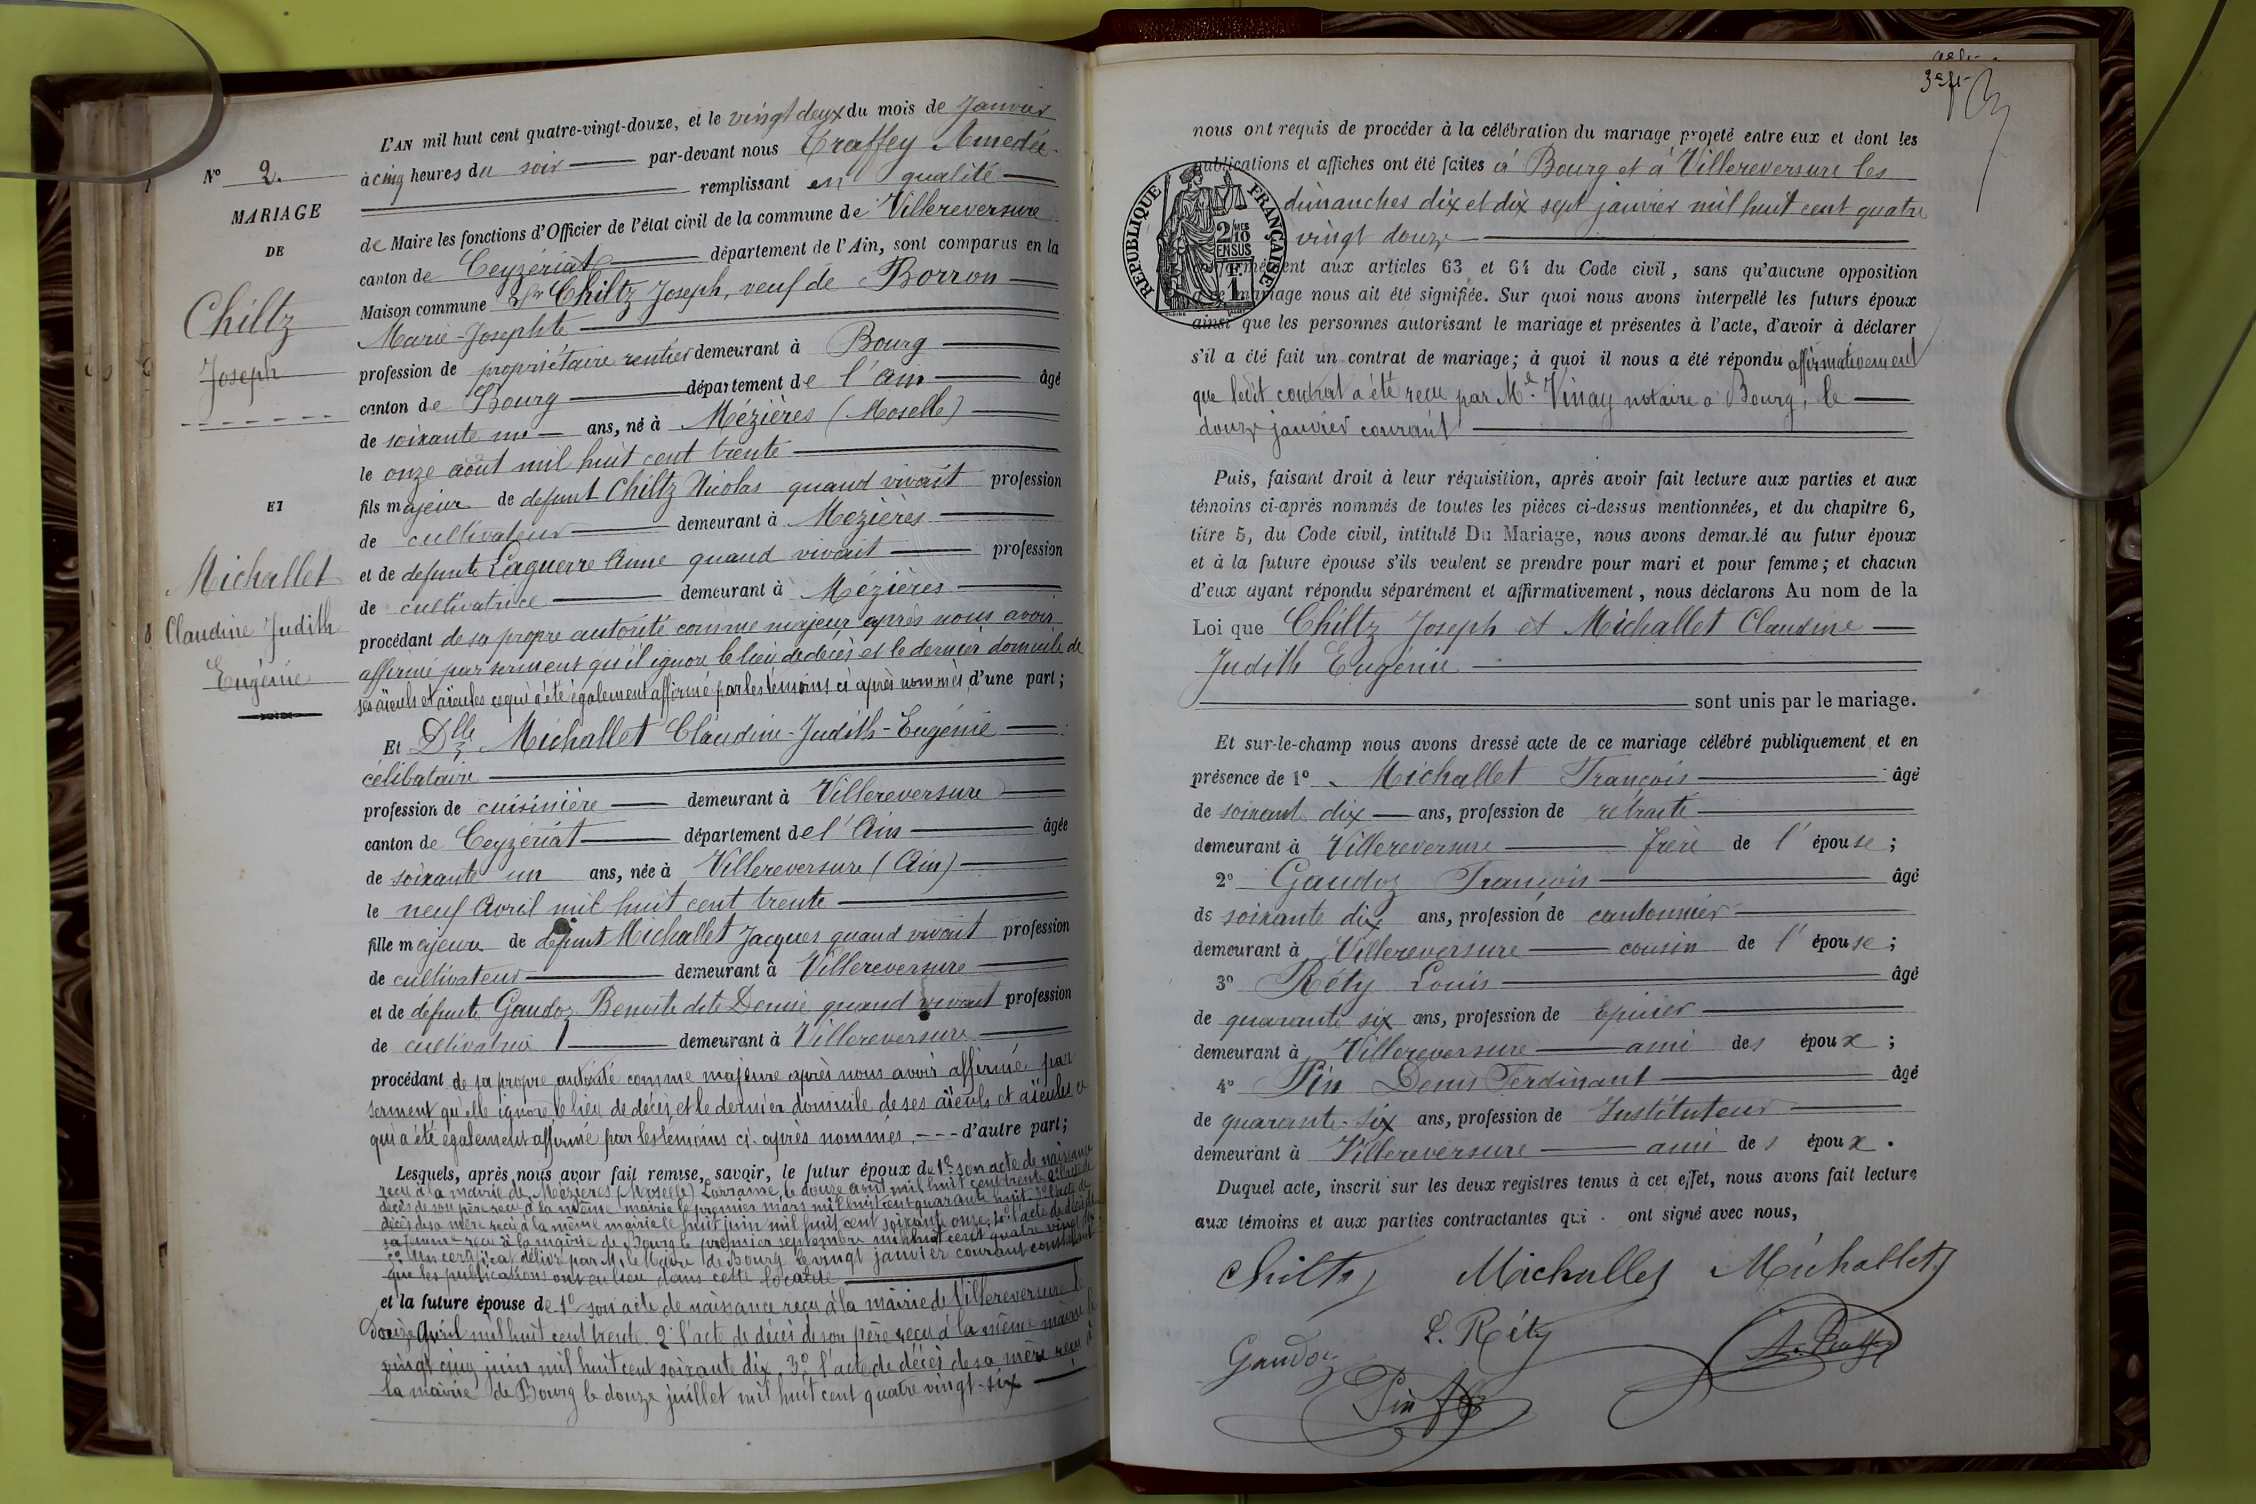 L'AN mil huit cent quatre-vingt-douze, et le vingt deux du mois de Janvier
à cinq heures du soir par-devant nous Traffey Amedée
remplissant en qualité
de Maire les fonctions d'Officier de l'état civil de la commune de Villereversure
canton de Ceyzériat département de l'Ain, sont comparus en la
Maison commune Sr Chiltz Joseph, veuf de Borron
Marie-Josephte
profession de propriétaire rentier demeurant à Bourg
canton de Bourg département de l'Ain âgé
de soixante un ans, né à Mézières (Moselle)
le onze août mil huit cent trente
fils majeur de defunt Chiltz Nicolas quand vivait profession
de cultivateur demeurant à Mézières
et de defunte Laguerre Anne quand vivait profession
de cultivatrice demeurant à Mézières
procédant de sa propre autorité comme majeur après nous avoir
affirmé par serment qu'il ignore le lieu de décès et le dernier domicile de
ses aïeuls et aïeules ce qui a été également affirmé par les témoins ci après nommés, d'une part;
Et Dlle Michallet Claudine-Judith-Eugénie
célibataire
profession de cuisinière demeurant à Villereversure
canton de Ceyzériat département de l'Ain âgée
de soixante un ans, née à Villereversure (Ain)
le neuf Avril mil huit cent trente
fille majeure de défunt Michallet Jacques quand vivait profession
de cultivateur demeurant à Villereversure
et de défunte Gaudoz Benoite dite Denise quand vivait profession
de cultivatrice demeurant à Villereversure
procédant de sa propre autorité comme majeure après nous avoir affirmé par
serment qu'elle ignore le lieu de décès et le dernier domicile de ses aïeuls et aïeules ce
qui a été également affirmé par les témoins ci-après nommés, --- d'autre part;
Lesquels, après nous avoir fait remise, savoir, le futur époux de 1° son acte de naissance
reçu à la mairie de Mézières (Moselle) Lorraine, le douze août mil huit cent trente 2° l'acte de
décès de son père reçu à la même mairie le premier mars mil huit cent quarante huit 3° l'acte de
décès de sa mère reçu à la même mairie le huit juin mil huit cent soixante onze, 4° l'acte de décès de
sa femme reçu à la mairie de Bourg le premier septembre mil huit cent quatre vingt
5° un certificat délivré par M. le Maire de Bourg le vingt janvier courant constatant
que les publications ont eu lieu dans cette localité
et la future épouse de 1° son acte de naissance reçu à la mairie de Villereversure le
Douze Avril mil huit cent trente. 2° l'acte de décès de son père reçu à la même mairie le
vingt cinq juin mil huit cent soixante dix. 3° l'acte de décès de sa mère reçu à
la mairie de Bourg le douze juillet mil huit cent quatre vingt-six
N° 2.
MARIAGE
DE
Chiltz
Joseph
ET
Michallet
Claudine Judith
Eugénie
nous ont requis de procéder à la célébration du mariage projeté entre eux et dont les
publications et affiches ont été faites à Bourg et à Villereversure les
dimanches dix et dix sept janvier mil huit cent quatre
vingt douze
conformément aux articles 63 et 64 du Code civil, sans qu'aucune opposition
à ce mariage nous ait été signifiée. Sur quoi nous avons interpellé les futurs époux
ainsi que les personnes autorisant le mariage et présentes à l'acte, d'avoir à déclarer
s'il a été fait un contrat de mariage; à quoi il nous a été répondu affirmativement
que ledit contrat a été reçu par Me Vinay notaire à Bourg, le
douze janvier courant
RÉPUBLIQUE FRANÇAISE
2/10MES
EN SUS
1F.
Puis, faisant droit à leur réquisition, après avoir fait lecture aux parties et aux
témoins ci-après nommés de toutes les pièces ci-dessus mentionnées, et du chapitre 6,
titre 5, du Code civil, intitulé Du Mariage, nous avons demandé au futur époux
et à la future épouse s'ils veulent se prendre pour mari et pour femme; et chacun
d'eux ayant répondu séparément et affirmativement, nous déclarons Au nom de la
Loi que Chiltz Joseph et Michallet Claudine
Judith Eugénie
sont unis par le mariage.
Et sur-le-champ nous avons dressé acte de ce mariage célébré publiquement et en
présence de 1° Michallet François âgé
de soixante dix ans, profession de retraité
demeurant à Villereversure frère de l'épouse;
2° Gaudoz François âgé
de soixante dix ans, profession de cantonnier
demeurant à Villereversure cousin de l'épouse;
3° Réty Louis âgé
de quarante six ans, profession de Epicier
demeurant à Villereversure ami des époux;
4° Pin Denis Ferdinant âgé
de quarante-six ans, profession de Instituteur
demeurant à Villereversure ami des époux.
Duquel acte, inscrit sur les deux registres tenus à cet effet, nous avons fait lecture
aux témoins et aux parties contractantes qui ont signé avec nous,
Chiltz Michallet Michallet
Gaudoz L. Réty A. Traffey
Pin